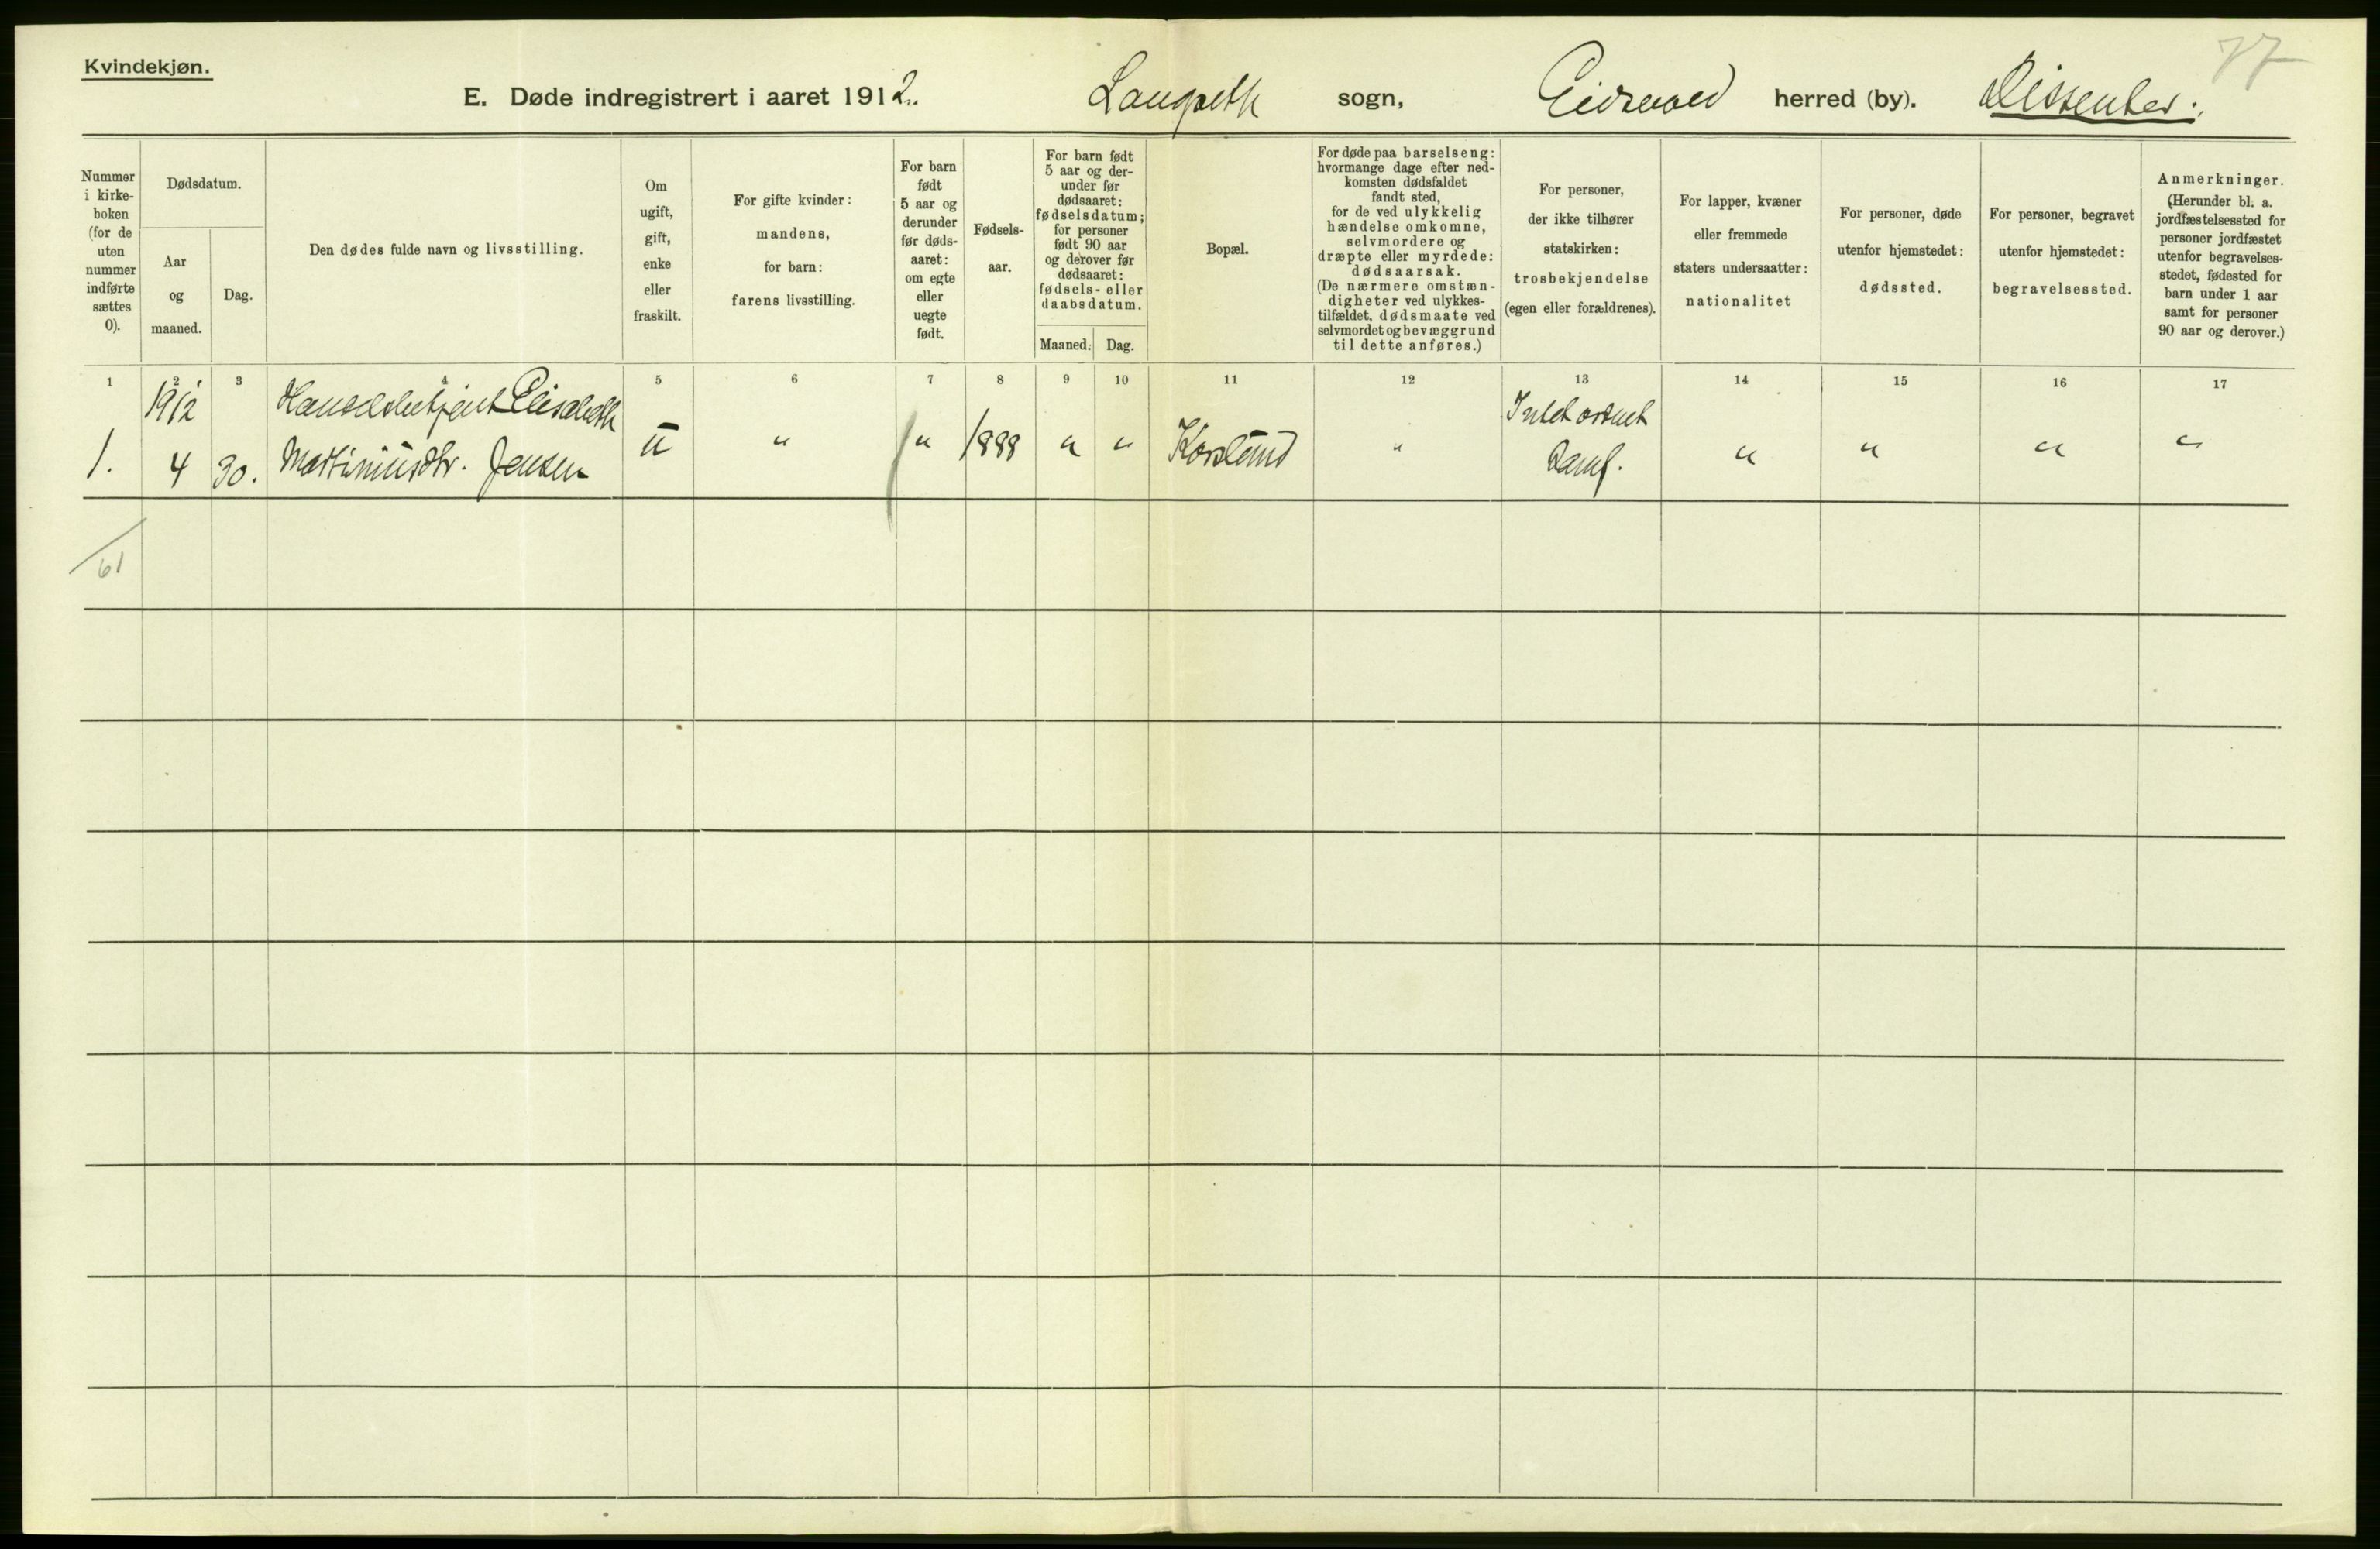 Kvindekjøn.
77
E. Døde indregistrert i aaret 1912. Langseth sogn, Eidsvold herred (by). Dissenter.
Nummer i kirke-boken (for de uten nummer indførte sættes 0).
Dødsdatum.
Aar og maaned.
Dag.
Den dødes fulde navn og livsstilling.
Om ugift, gift, enke eller fraskilt.
For gifte kvinder: mandens, for barn: farens livsstilling.
For barn født 5 aar og derunder før døds-aaret: om egte eller uegte født.
Fødsels-aar.
For barn født 5 aar og der-under før dødsaaret: fødselsdatum; for personer født 90 aar og derover før dødsaaret: fødsels- eller daabsdatum.
Maaned.
Dag.
Bopæl.
For døde paa barselseng: hvormange dage efter ned-komsten dødsfaldet fandt sted, for de ved ulykkelig hændelse omkomne, selvmordere og dræpte eller myrdede: dødsaarsak. (De nærmere omstæn-digheter ved ulykkes-tilfældet, dødsmaate ved selvmordet og bevæggrund til dette anføres.)
For personer, der ikke tilhører statskirken: trosbekjendelse (egen eller forældrenes).
For lapper, kvæner eller fremmede staters undersaatter: nationalitet
For personer, døde utenfor hjemstedet: dødssted.
For personer, begravet utenfor hjemstedet: begravelsessted.
Anmerkninger. (Herunder bl. a. jordfæstelsessted for personer jordfæstet utenfor begravelses-stedet, fødested for barn under 1 aar samt for personer 90 aar og derover.)
1 2 3 4 5 6 7 8 9 10 11 12 13 14 15 16 17
1912 Handelsbetjent Elisabeth Intet ordnet
1. 4 30. Martiniusdtr. Jensen u " " 1888 " " Korslund " Samf. " " " "
61